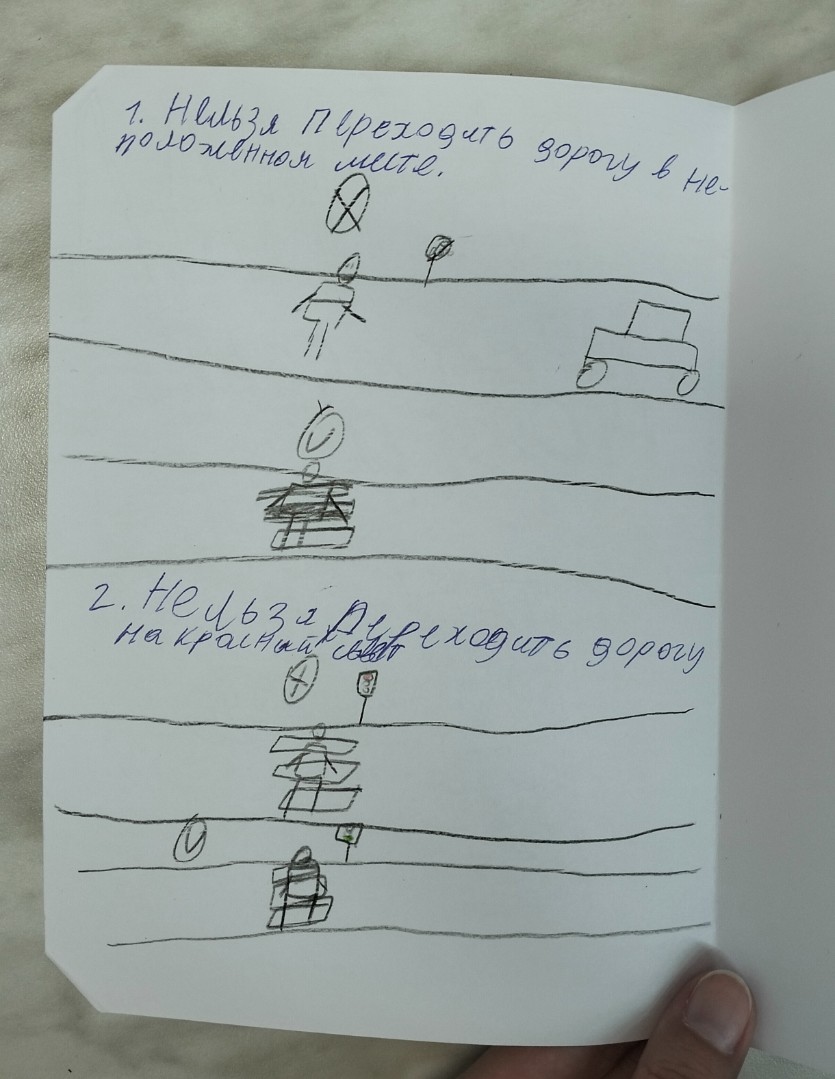 1. Нельзя переходить дорогу в не-
положенном месте.
2. Нельзя переходить дорогу
на красный свет